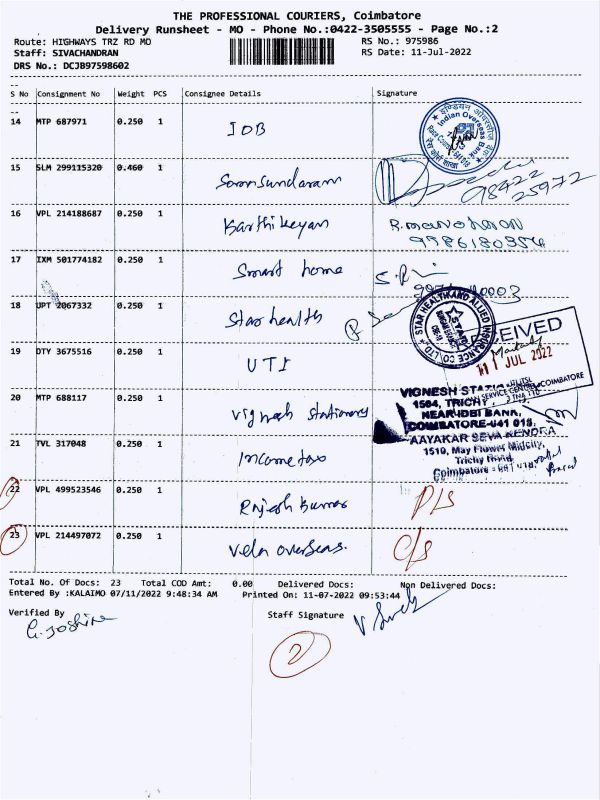 THE PROFESSIONAL COURIERS, Coimbatore
Delivery Runsheet - MO - Phone No.:0422-3505555 - Page No.:2
Route: HIGHWAYS TRZ RD MO RS No.: 975986
Staff: SIVACHANDRAN RS Date: 11-Jul-2022
DRS No.: DCJB97598602
S No Consignment No Weight PCS Consignee Details Signature
14 MTP 687971 0.250 1 IOB
Indian Overseas Bank
15 SLM 299115320 0.460 1 Somsundaram
98422
25972
16 VPL 214188687 0.250 1 Karthikeyan R. manoharan
17 IXM 501774182 0.250 1 Smart home
18 UPT 2067332 0.250 1 Star health
STAR HEALTH AND ALLIED INSURANCE CO. LTD.
RECEIVED
11 JUL 2022
19 DTY 3675516 0.250 1 UTI
COIMBATORE
20 MTP 688117 0.250 1 Vignesh Stationery
VIGNESH
1504, TRICHY
NEAR IDBI BANK,
COIMBATORE-641 018.
21 TVL 317048 0.250 1 Income tax
AAYAKAR SEVA KENDRA
1510, May Flower Midcity,
Trichy Road,
Coimbatore - 641 018
22 VPL 499523546 0.250 1 Rajesh Kumar P/S
23 VPL 214497072 0.250 1 Vela overseas. C/S
Total No. Of Docs: 23 Total COD Amt: 0.00 Delivered Docs: Non Delivered Docs:
Entered By :KALAIMO 07/11/2022 9:48:34 AM Printed On: 11-07-2022 09:53:44
Verified By Staff Signature
G. Joshira
2